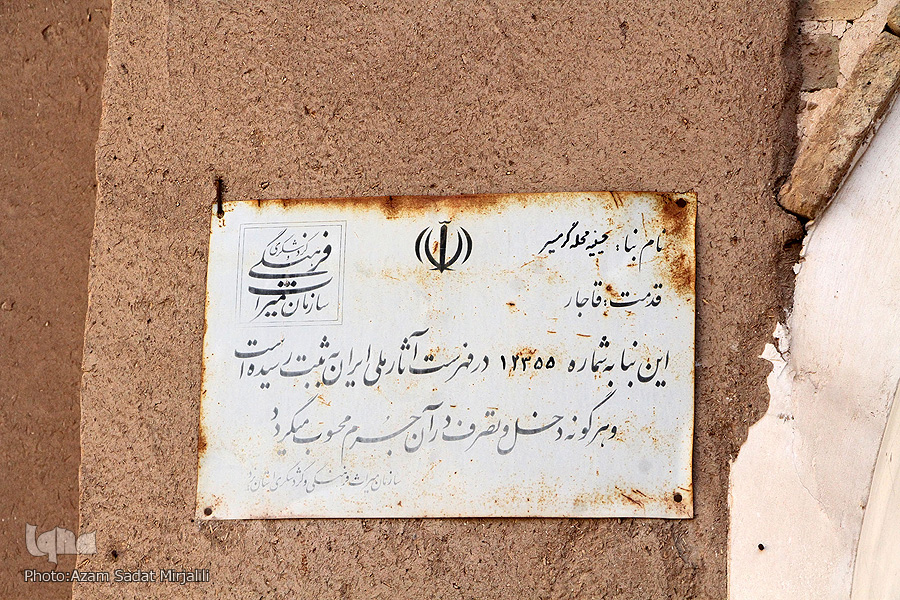 نام بنا: حسینیه محله گرمسیر
قدمت: قاجار
سازمان میراث فرهنگی گردشگری
این بنا به شماره ۱۲۳۵۵ در فهرست آثار ملی ایران به ثبت رسیده است
و هرگونه دخل و تصرف در آن جرم محسوب میگردد
سازمان میراث فرهنگی و گردشگری استان یزد
iqna
Photo:Azam Sadat Mirjalili